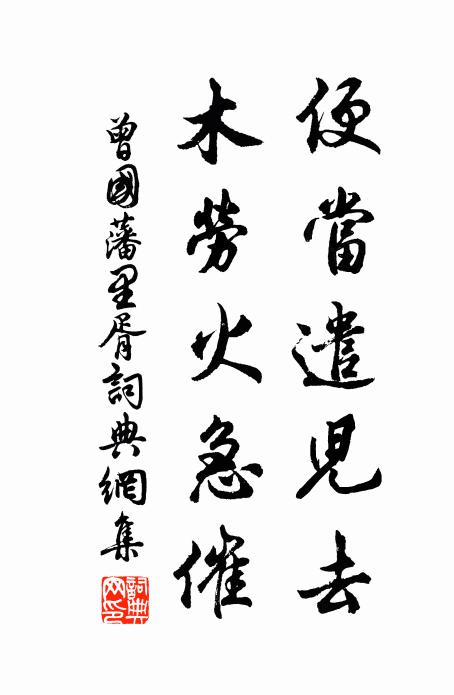 便當遣兒去
木勞火急催
曾國藩里胥詞典網集
詞典
网印